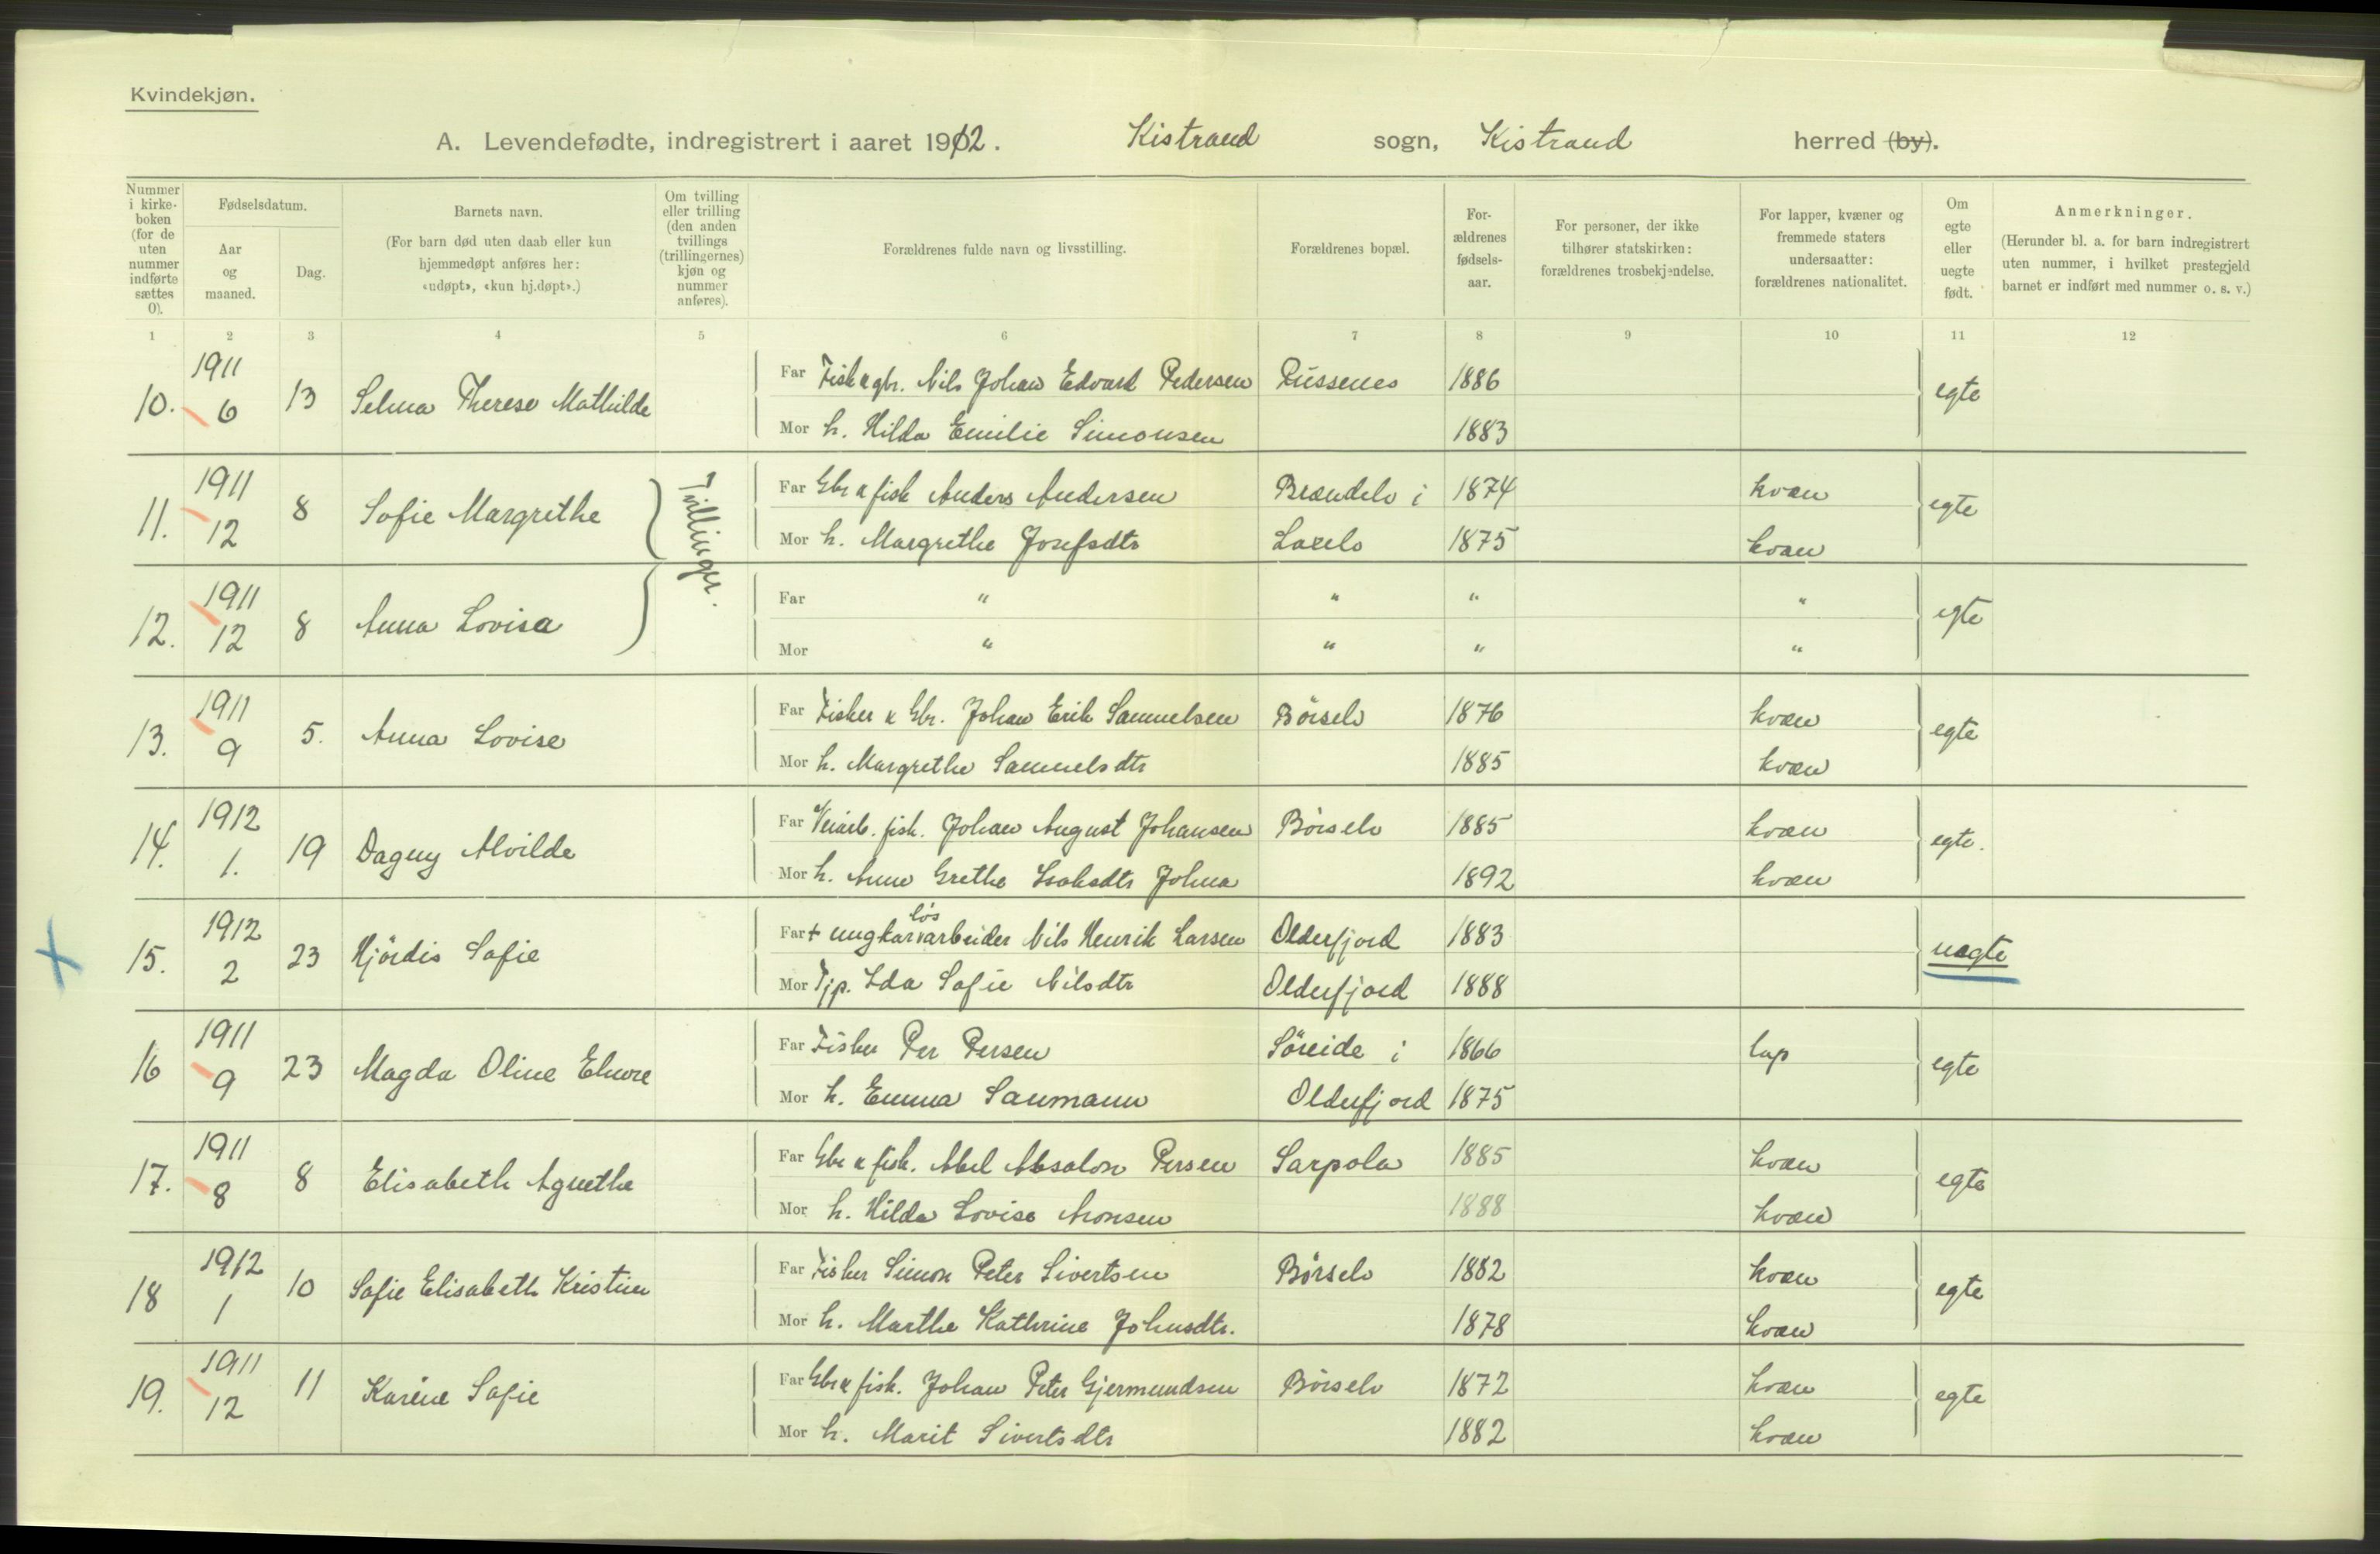 Kvindekjøn.
A. Levendefødte, indregistrert i aaret 1912. Kistrand sogn, Kistrand herred (by).
Nummer i kirkeboken (for de uten nummer indførte sættes 0).
Fødselsdatum.
Aar og maaned.
Dag.
Barnets navn.
(For barn død uten daab eller kun hjemmedøpt anføres her: «udøpt», «kun hj.døpt».)
Om tvilling eller trilling (den anden tvillings (trillingernes) kjøn og nummer anføres).
Forældrenes fulde navn og livsstilling.
Forældrenes bopæl.
For-ældrenes fødsels-aar.
For personer, der ikke tilhører statskirken: forældrenes trosbekjendelse.
For lapper, kvæner og fremmede staters undersaatter: forældrenes nationalitet.
Om egte eller uegte født.
Anmerkninger.
(Herunder bl. a. for barn indregistrert uten nummer, i hvilket prestegjeld barnet er indført med nummer o. s. v.)
1 2 3 4 5 6 7 8 9 10 11 12
10. 1911 6 13 Selma Therese Mathilde
Far Fisk & gbr. Nils Johan Edvard Pedersen Russenes 1886 egte
Mor h. Hilda Emilie Simonsen 1883
11. 1911 12 8 Sofie Margrethe Tvillinger.
Far Gbr & fisk Anders Andersen Brændelv i 1874 kvæn egte
Mor h. Margrethe Josefsdtr Laxelv 1875 kvæn
12. 1911 12 8 Anna Lovisa
Far " " " " egte
Mor " " " "
13. 1911 9 5. Anna Lovise
Far Fisker & Gbr. Johan Erik Samuelsen Börselv 1876 kvæn egte
Mor h. Margrethe Samuelsdtr 1885 kvæn
14. 1912 1. 19 Dagny Alvilde
Far Veiarb. fisk. Johan August Johansen Börselv 1885 kvæn egte.
Mor h. Anne Grethe Isaksdtr Johna 1892 kvæn
15. 1912 2 23 Hjördis Sofie
Far + ungkar løsarbeider Nils Henrik Larsen Olderfjord 1883 uegte
Mor Tjp. Ida Sofie Nilsdtr Olderfjord 1888
16 1911 9 23 Magda Oline Elvore
Far Fisker Per Persen Söreide i 1866 lap egte
Mor h. Emma Saumann Olderfjord 1875
17. 1911 8 8 Elisabeth Agnethe
Far Gbr & fisk. Abel Absalon Persen Sarpola 1885 kvæn egte
Mor h. Hilda Lovise Aronsen 1888 kvæn
18 1912 1 10 Sofie Elisabeth Kristine
Far Fisker Simon Peter Sivertsen Börselv 1882 kvæn egte
Mor h. Marthe Kathrine Johnsdtr. 1878 kvæn
19. 1911 12 11 Karine Sofie
Far Gbr & fisk. Johan Peter Gjermundsen Börselv 1872 kvæn egte
Mor h. Marit Sivertsdtr 1882 kvæn